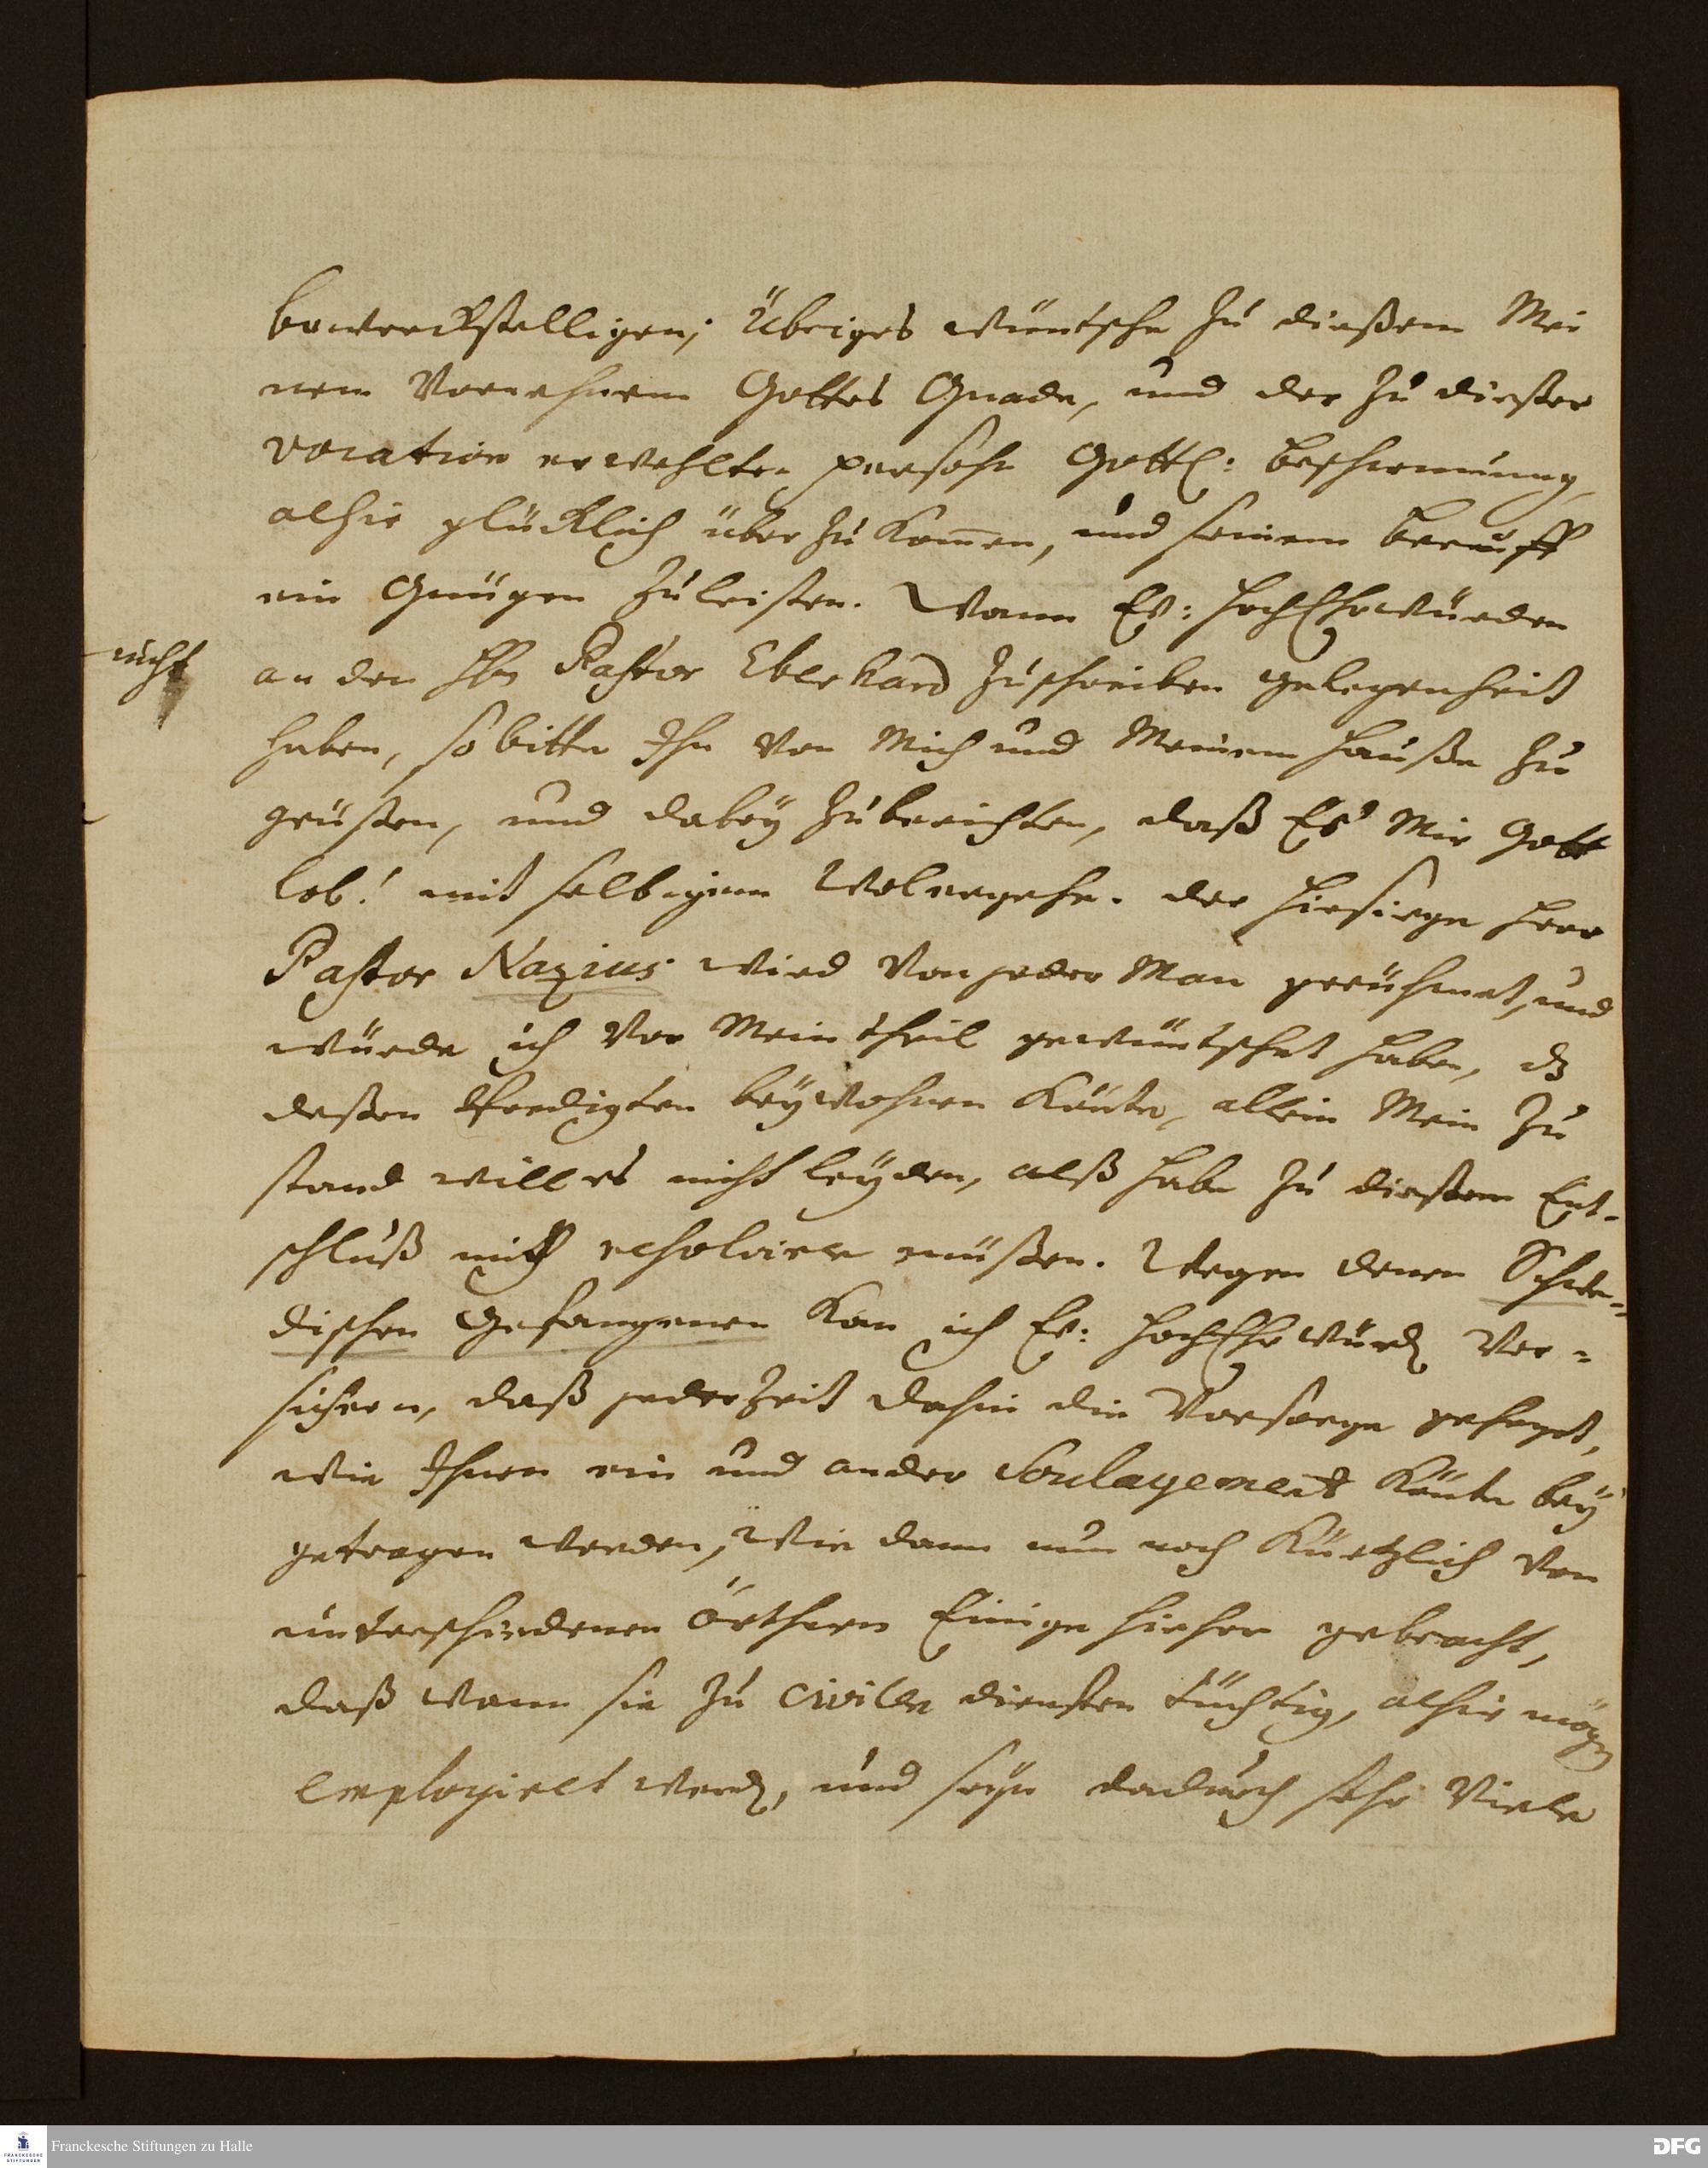 bewerckstelligen; Übriges wüntsche zu dießem Mei
nem Vornehmen Gottes Gnade, und der zu dießer
vocation erwehlten persohn Göttl: beschirmung,
alhie glücklich über zu kommen, und seinem beruff
ein Gnügen zu leisten. Wann Ew: HochEhrwürden
an den Hrn Pastor Eberhard zuschreiben gelegenheit
haben, so bitte Ihn von Mich und Meinem Hauße zu
grüßen, und dabey zuberichten, daß Es Mir Gott
lob! mit selbigem Wolergehe. der hiesiege Herr
Pastor Nazius wird von jeder Man gerühmet, und
würde ich vor Mein theil gewüntschet haben, dz
deßen Predigten beywohnen könte, allein Mein Zu
stand will es nicht leyden, alß habe zu dießem Ent-
schluß mich resolvieren müßen. Wegen denen Schwe-
dischen Gefangenen kan ich Ew: HochEhrwürd Ver-
sichern, daß jederzeit dahin die Vorsorge geheget,
wie Ihnen ein und ander Soulagement könte bey
getragen werden, wie dann nun noch kürtzlich von
unterschiedenen örthern Einige hieher gebracht,
daß wann sie zu civilen diensten tüchtig, alhie mögen
employiret werd, und seyn dadurch sehr Viele
nicht
Franckesche Stiftungen zu Halle
FRANCKESCHE STIFTUNGEN
DFG